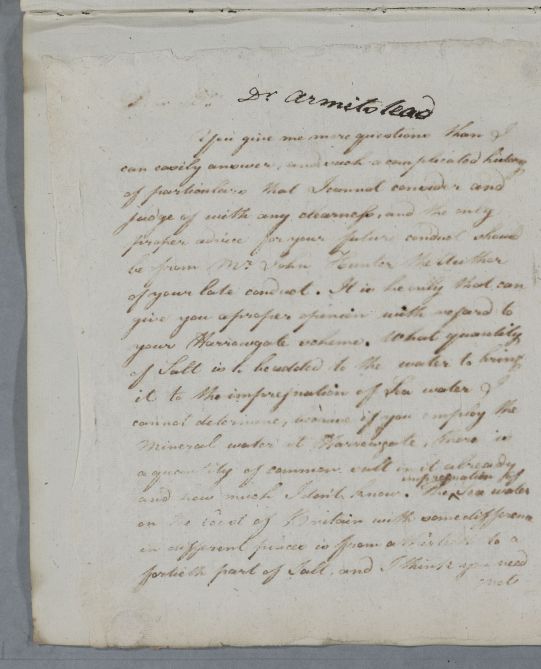 Dr Armitstead
You give me more questions than I
can easily answer, and such a complicated history
of particulars that I cannot consider and
judge of with any clearness, and the only
proper advice for your future conduct should
be from Mr. John Hunter the Author
of your late conduct. It is he only that can
give you a proper opinion with regard to
your Harrowgate scheme. What quantity
of Salt is to be added to the water to bring
it to the impregnation of Sea water I
cannot determine, because if you employ the
Mineral water at Harrowgate, there is
a quantity of common salt in it already
and how much I don't know. The impregnation of Sea water
on the coast of Britain with some difference
in different places is from a thirtieth to a
fortieth part of Salt, and I think you need
not